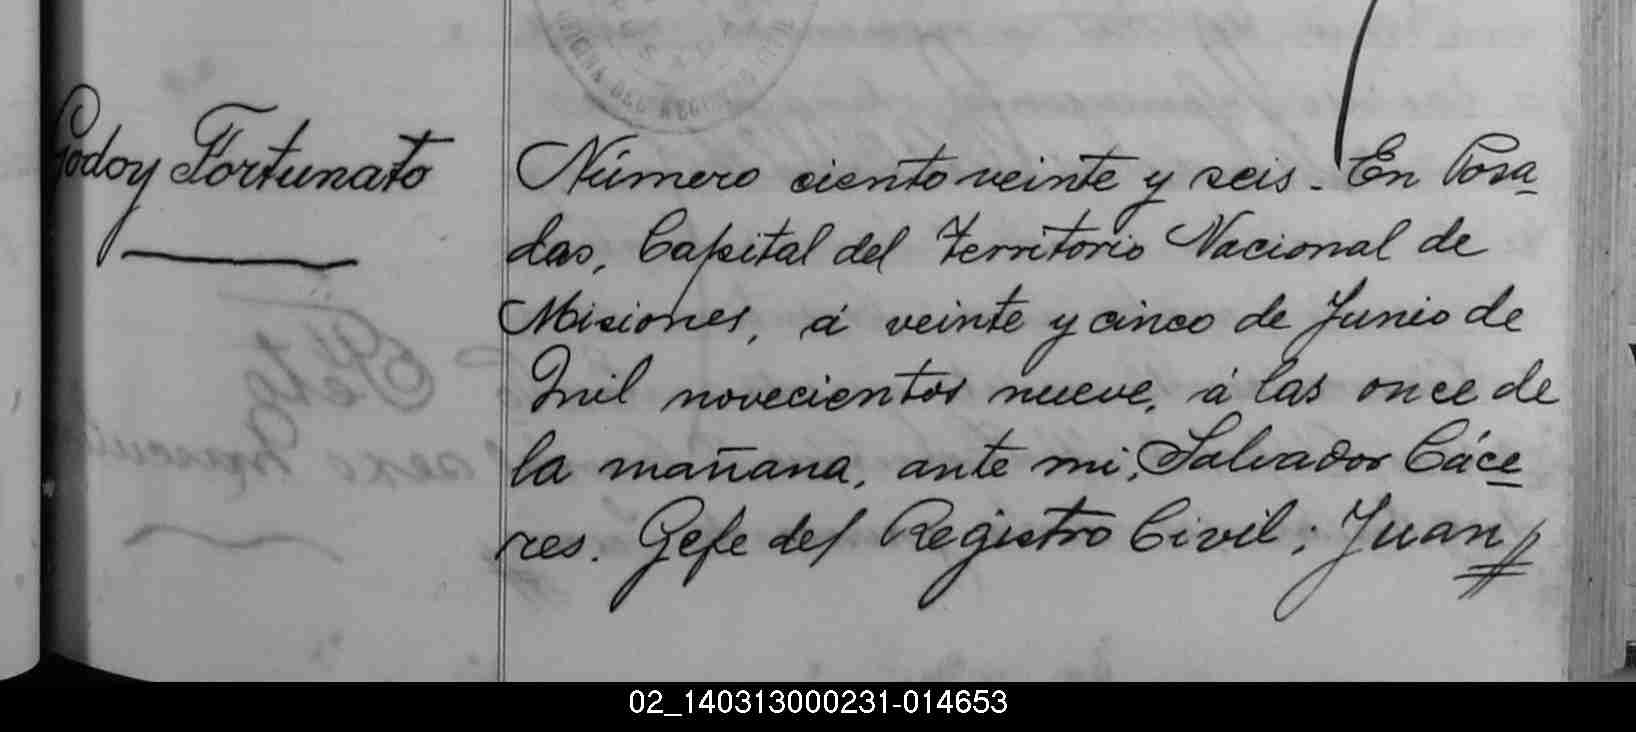 Godoy Fortunato
Número ciento veinte y seis. En Posa-
das, Capital del Territorio Nacional de
Misiones, á veinte y cinco de Junio de
mil novecientos nueve, á las once de
la mañana, ante mi, Salvador Cáce-
res. Gefe del Registro Civil; Juan
02_140313000231-014653